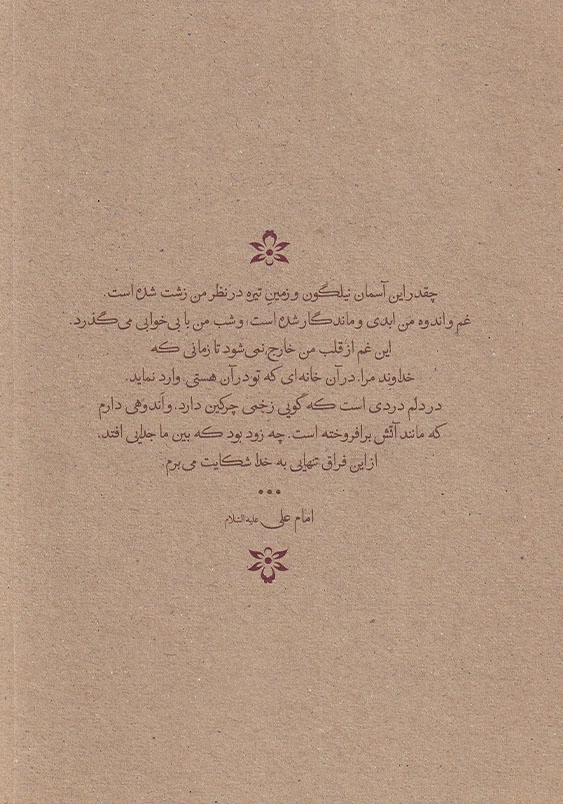 چقدر این آسمان نیلگون و زمینِ تیره در نظر من زشت شده است.
غم و اندوه من ابدی و ماندگار شده است؛ و شب من با بی‌خوابی می‌گذرد.
این غم از قلب من خارج نمی‌شود تا زمانی که
خداوند مرا، در آن خانه‌ای که تو در آن هستی، وارد نماید.
در دلم دردی است که گویی زخمی چرکین دارد. و اندوهی دارم
که مانند آتش برافروخته است. چه زود بود که بین ما جدایی افتد،
از این فراق تنهایی به خدا شکایت می‌برم.
•••
امام علی علیه السّلام